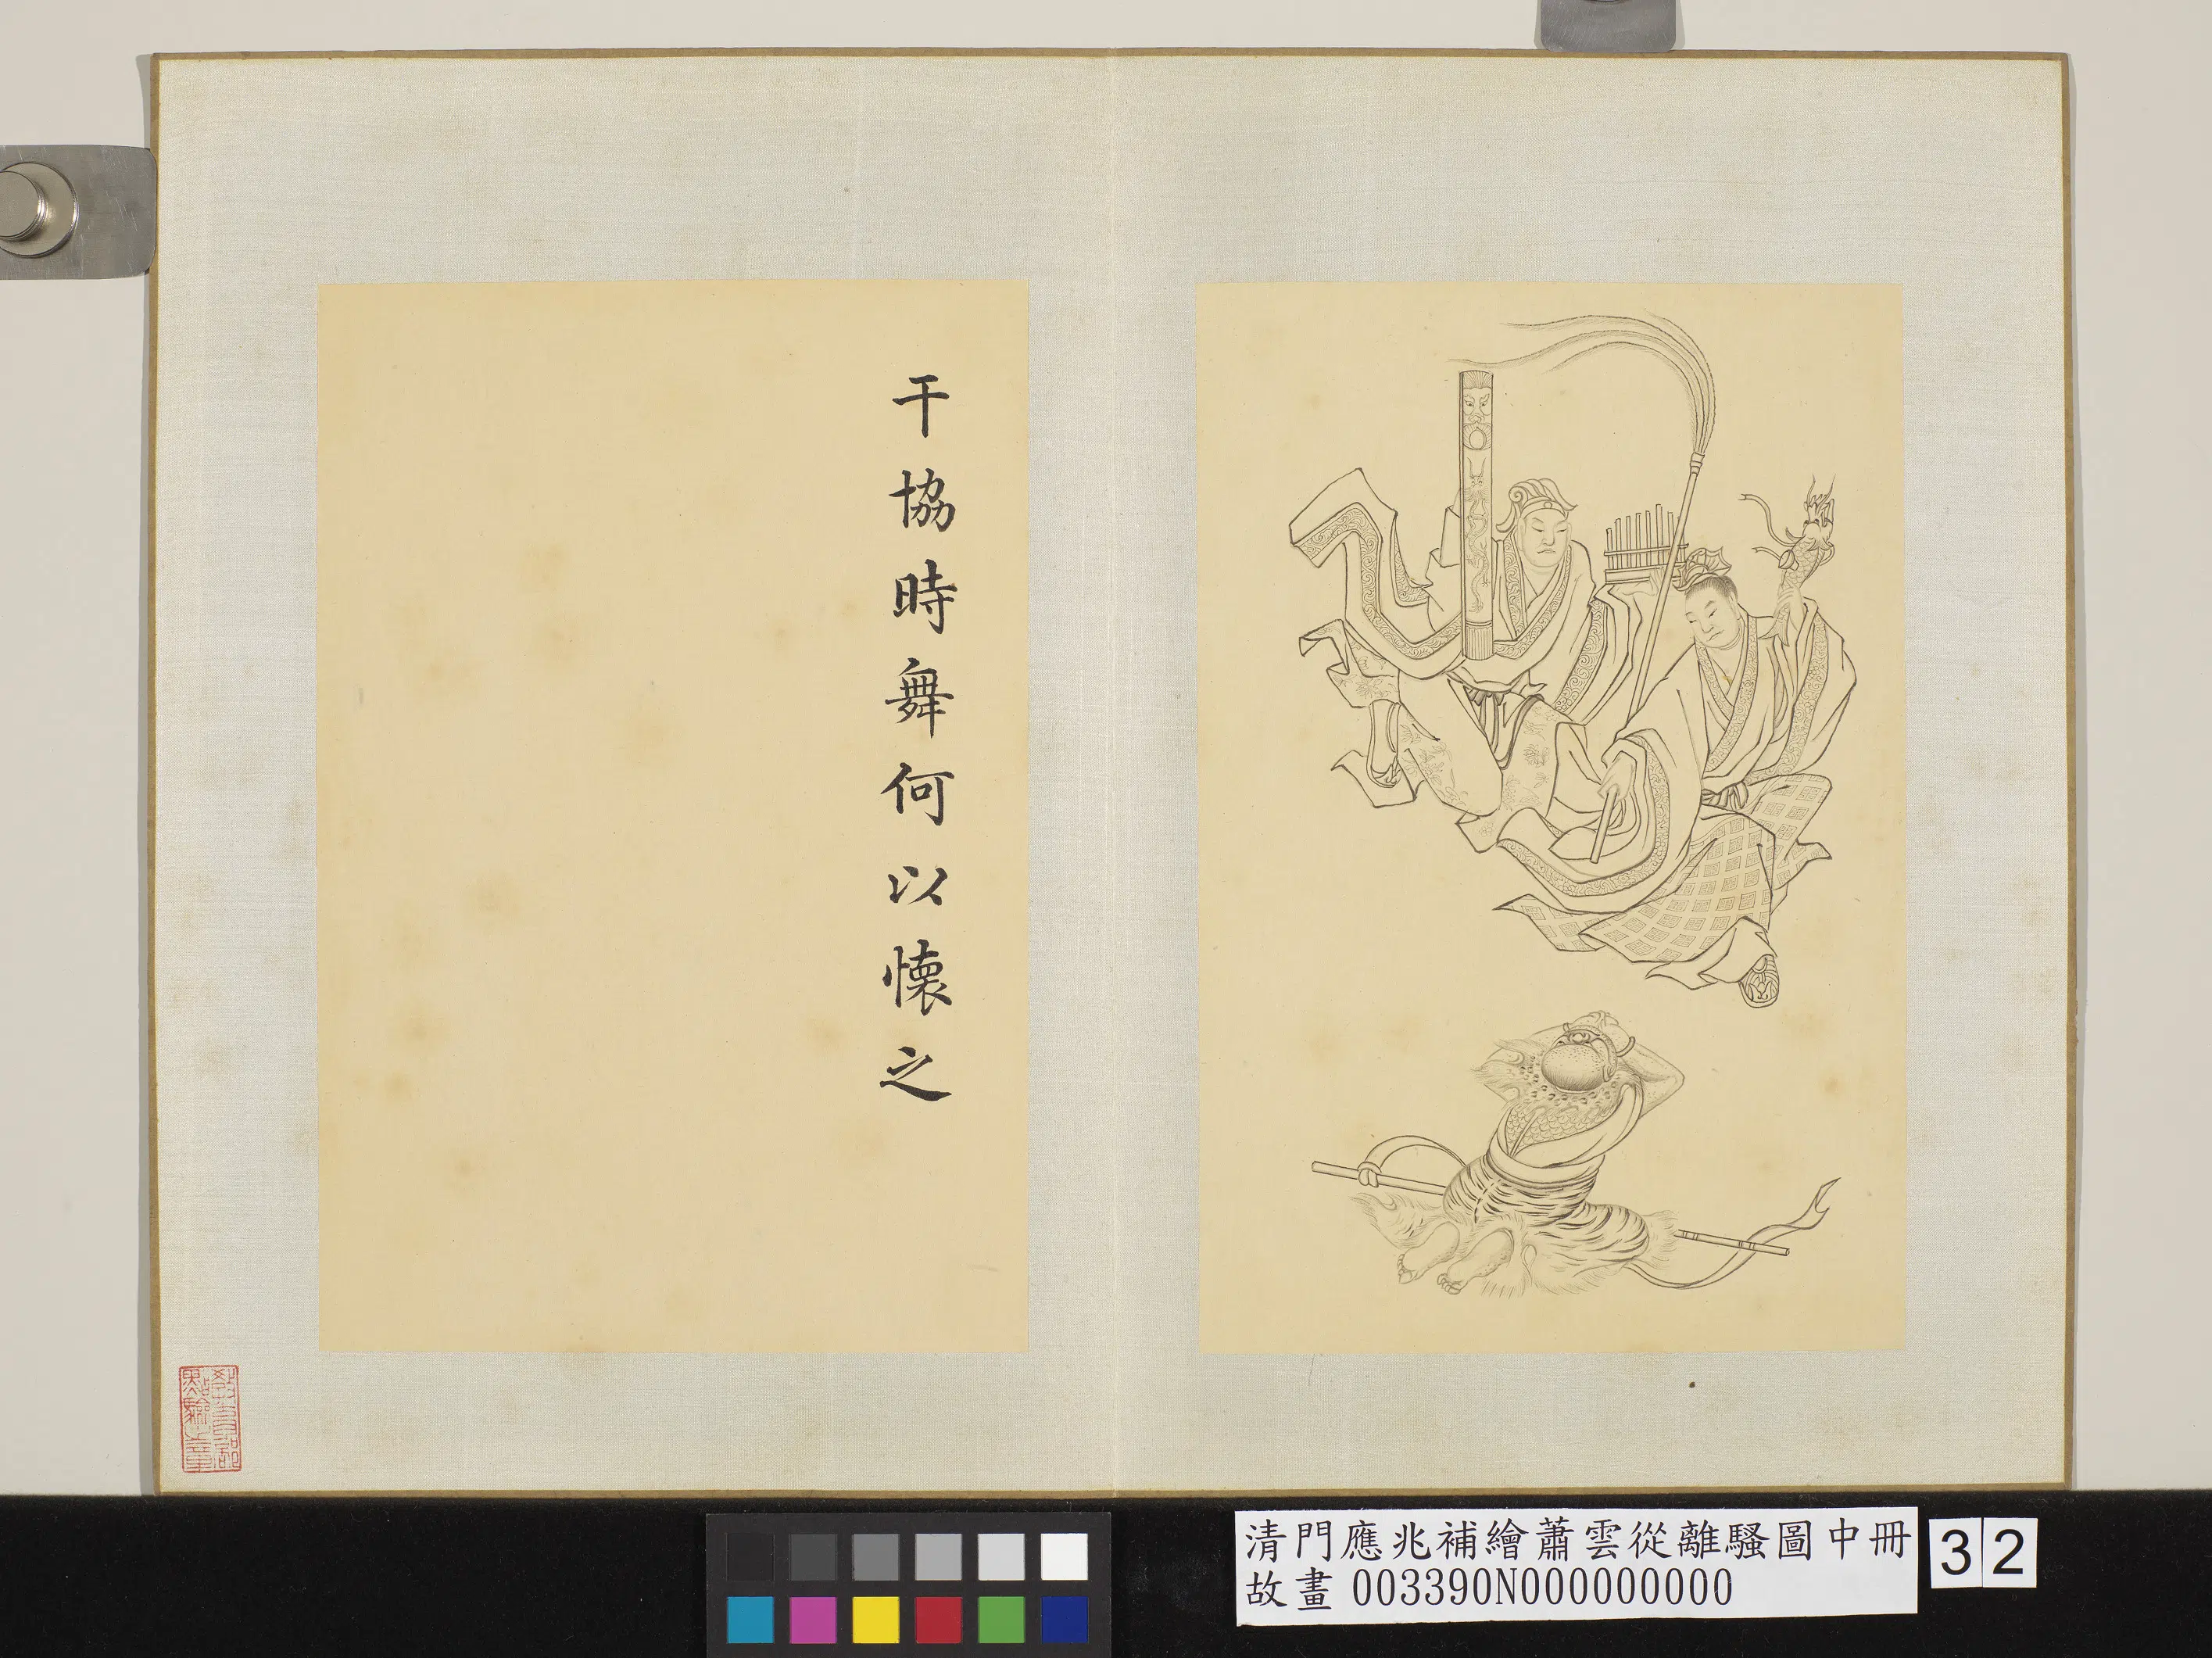 干協時舞何以懷之
教育部
點驗之章
清門應兆補繪蕭雲從離騷圖中冊
故畫 003390N000000000
32